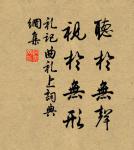 聽於無聲
視於無形
礼記曲礼上詞典
網集